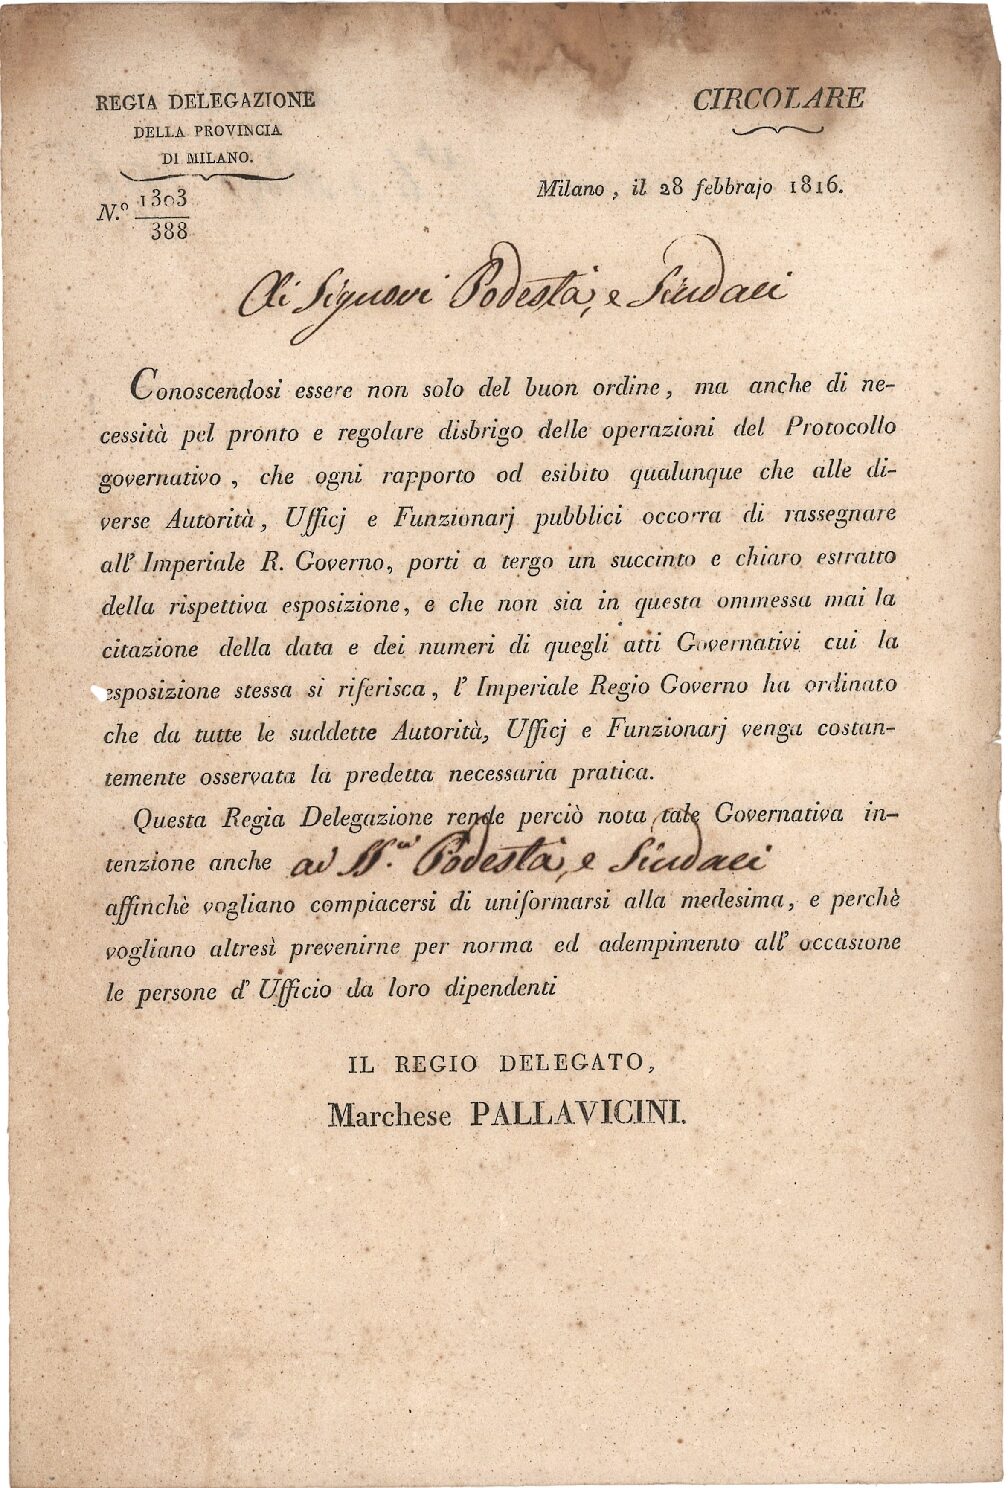 REGIA DELEGAZIONE
DELLA PROVINCIA
DI MILANO.
N.º 1303
388
CIRCOLARE
Milano, il 28 febbrajo 1816.
Ai Signori Podestà, e Sindaci
Conoscendosi essere non solo del buon ordine, ma anche di ne-
cessità pel pronto e regolare disbrigo delle operazioni del Protocollo
governativo, che ogni rapporto od esibito qualunque che alle di-
verse Autorità, Ufficj e Funzionarj pubblici occorra di rassegnare
all' Imperiale R. Governo, porti a tergo un succinto e chiaro estratto
della rispettiva esposizione, e che non sia in questa ommessa mai la
citazione della data e dei numeri di quegli atti Governativi cui la
esposizione stessa si riferisca, l' Imperiale Regio Governo ha ordinato
che da tutte le suddette Autorità, Ufficj e Funzionarj venga costan-
temente osservata la predetta necessaria pratica.
Questa Regia Delegazione rende perciò nota tale Governativa in-
tenzione anche ai SS.ri Podestà, e Sindaci
affinchè vogliano compiacersi di uniformarsi alla medesima, e perchè
vogliano altresì prevenirne per norma ed adempimento all' occasione
le persone d' Ufficio da loro dipendenti
IL REGIO DELEGATO,
Marchese PALLAVICINI.